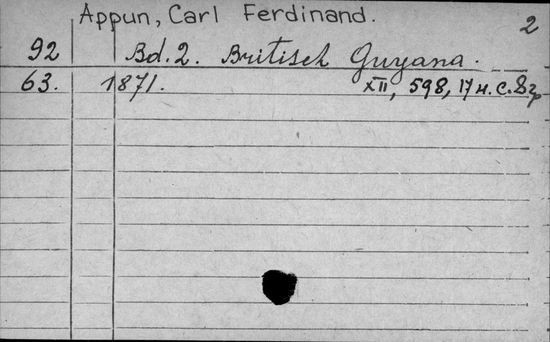 Appun, Carl Ferdinand.
2
92 Bd. 2. Britisch Guyana.
63. 1871. XII, 598, 17 н. с. 8